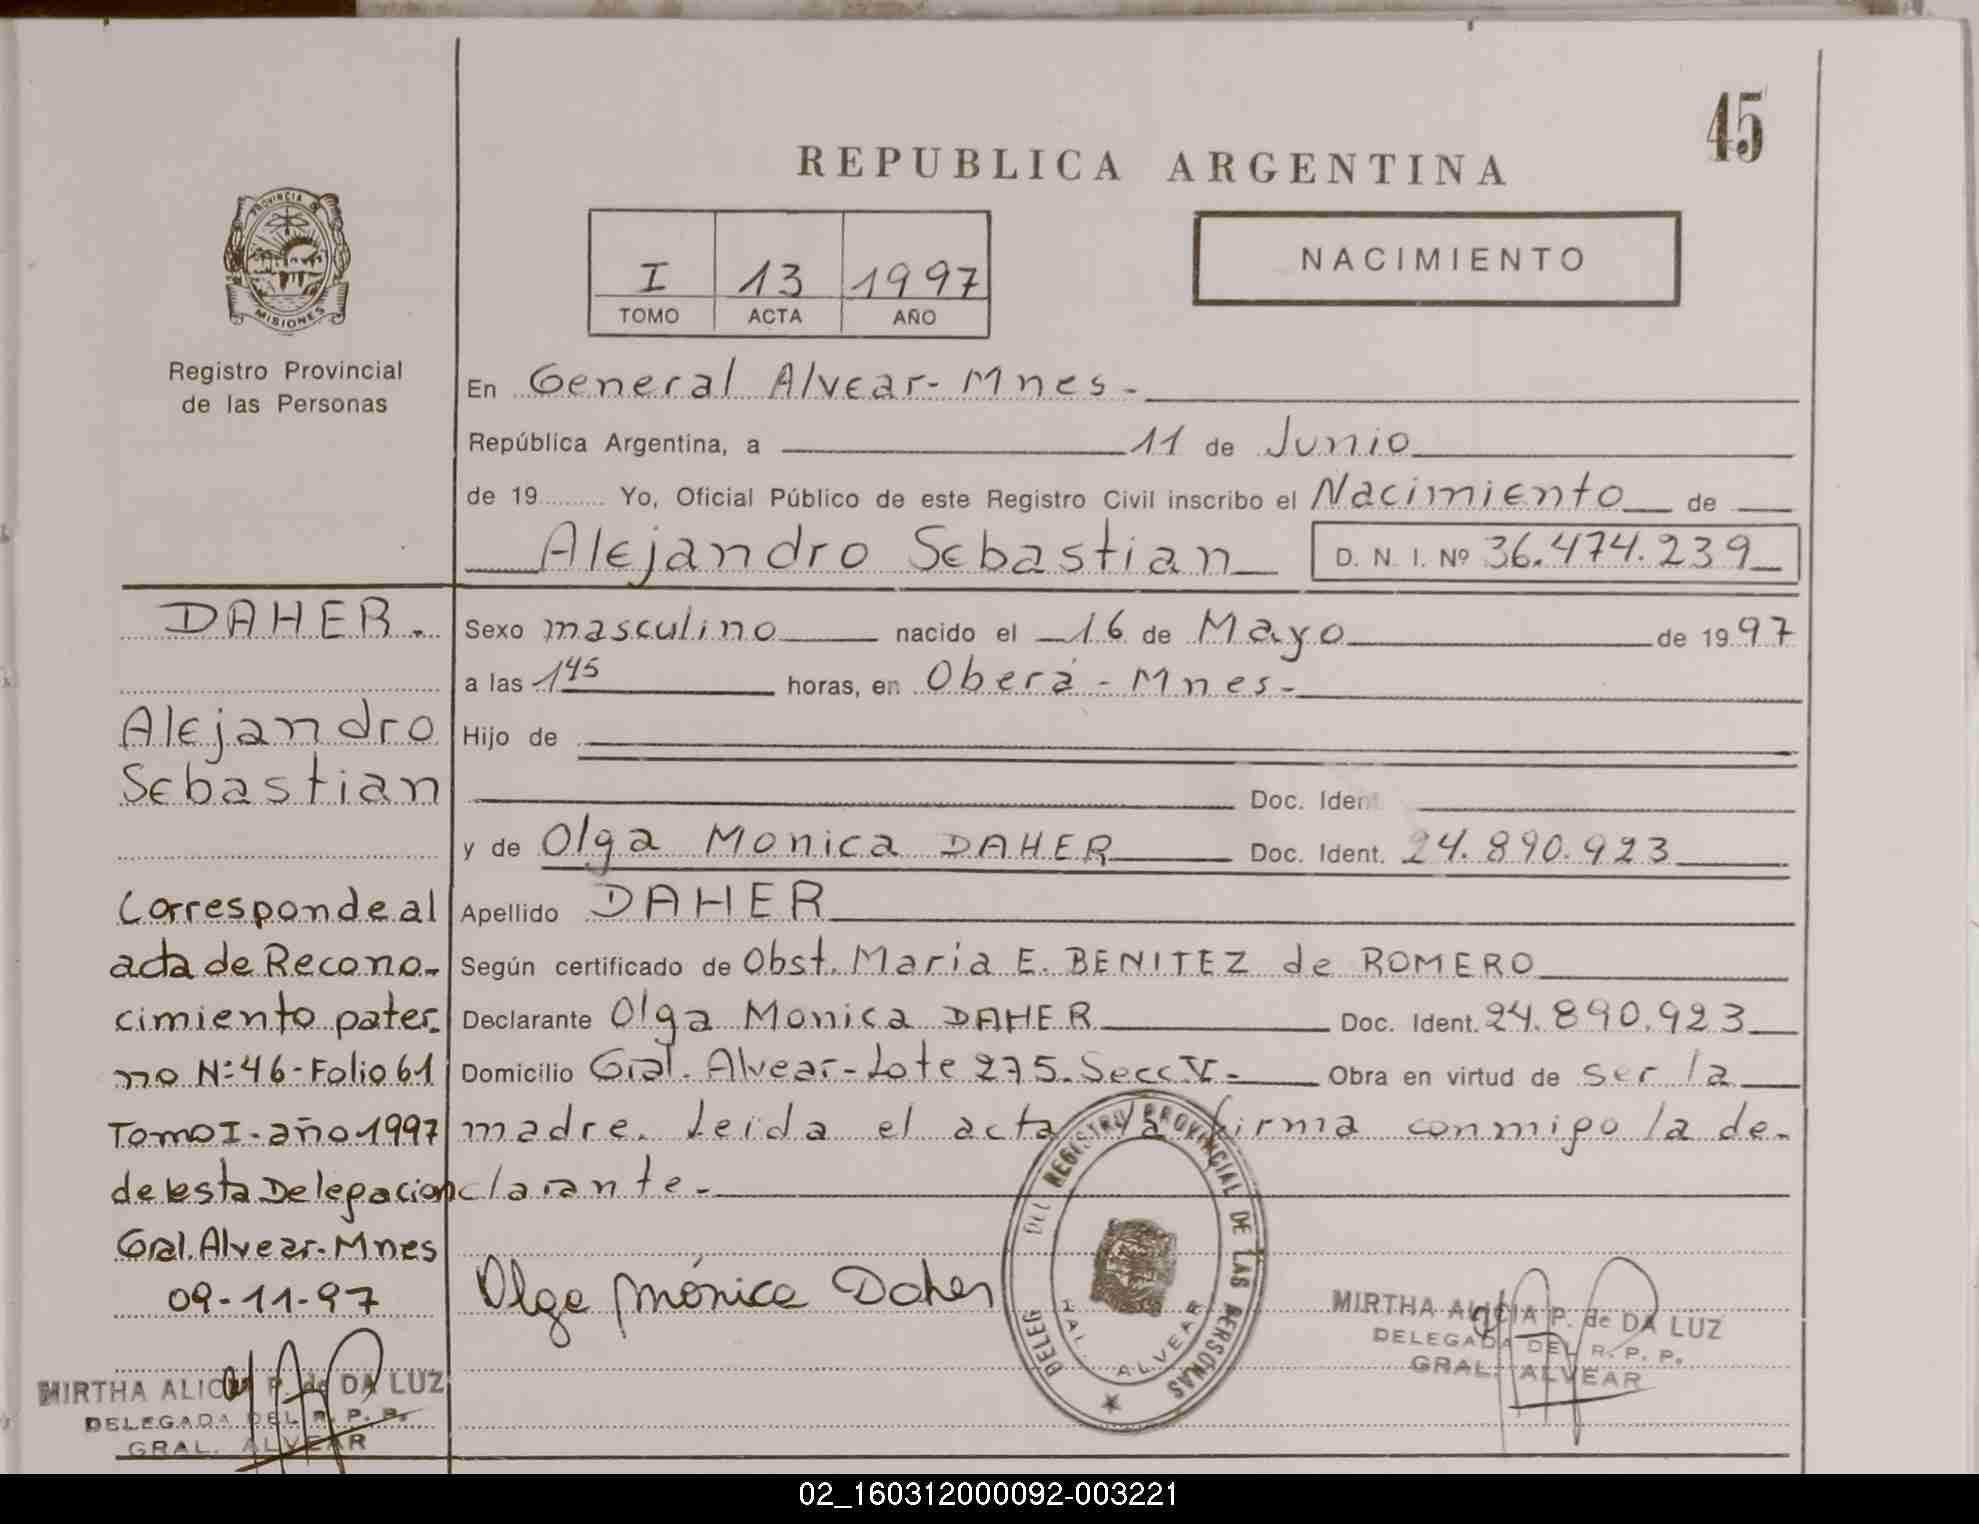 45
REPUBLICA ARGENTINA
PROVINCIA DE
MISIONES
I 13 1997
TOMO ACTA AÑO
NACIMIENTO
Registro Provincial
de las Personas
En General Alvear - Mnes -
República Argentina, a 11 de Junio
de 19 Yo, Oficial Público de este Registro Civil inscribo el Nacimiento de
Alejandro Sebastian D. N. I. Nº 36.474.239
Sexo masculino nacido el 16 de Mayo de 19 97
a las 1 45 horas, en Oberá - Mnes -
Hijo de
Doc. Ident
y de Olga Monica DAHER Doc. Ident. 24.890.923
Apellido DAHER
Según certificado de Obst. Maria E. BENITEZ de ROMERO
Declarante Olga Monica DAHER Doc. Ident. 24.890.923
Domicilio Gral. Alvear - Lote 275. Secc V - Obra en virtud de ser la
madre. Leida el acta la firma conmigo la de-
clarante -
Olga Mónica Daher
DELEG DEL REGISTRO PROVINCIAL DE LAS PERSONAS
ALVEAR
MIRTHA ALICIA P. de DA LUZ
DELEGADA DEL R. P. P.
GRAL. ALVEAR
DAHER.
Alejandro
Sebastian
Corresponde al
acta de Recono-
cimiento pater-
no Nº 46 - Folio 61
Tomo I - año 1997
de esta Delegacion
Gral. Alvear - Mnes
09-11-97
MIRTHA ALICIA P. de DA LUZ
DELEGADA DEL R. P. P.
GRAL. ALVEAR
02_160312000092-003221